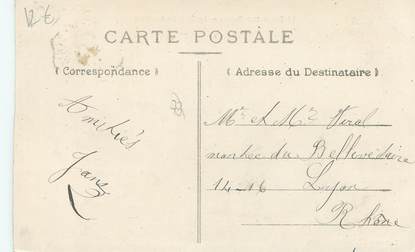 12 €
CARTE POSTALE
( Correspondance )
( Adresse du Destinataire )
Amitiés
Mr et Me Viral
montée du Belvédère
14-16 Lyon
Rhône